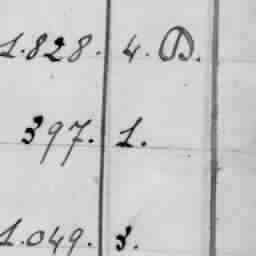 1.828. 4. D.
397. 1.
1.049. 3.